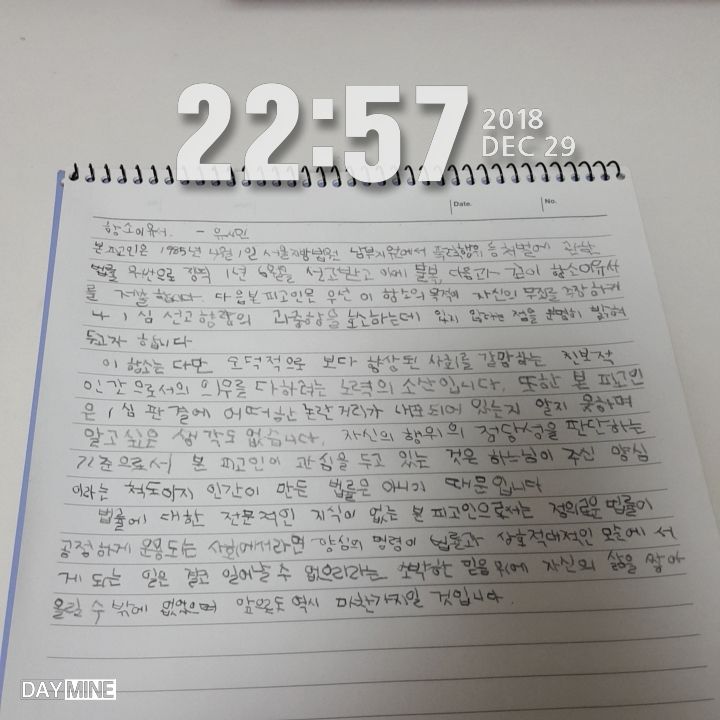 22:57
2018
DEC 29
Date.
No.
항소이유서. - 유시민
본 피고인은 1985년 4월 1일 서울지방법원 남부지원에서 폭력행위 등 처벌에 관한
법률 위반으로 징역 1년 6월을 선고받고 이에 불복 다음과 같이 항소이유서
를 제출합니다. 다음 본 피고인은 우선 이 항소의 목적이 자신의 무죄를 주장하거
나 1심 선고형량의 과중함을 호소하는데 있지 않다는 점을 분명히 밝혀
두고자 합니다
이 항소는 다만 도덕적으로 보다 향상된 사회를 갈망하는 진보적
인간으로서의 의무를 다하려는 노력의 소산입니다. 또한 본 피고인
은 1심 판결에 어떠한 논란거리가 내포되어 있는지 알지 못하며
알고 싶은 생각도 없습니다. 자신의 행위의 정당성을 판단하는
기준으로서 본 피고인이 관심을 두고 있는 것은 하느님이 주신 양심
이라는 척도이지 인간이 만든 법률은 아니기 때문입니다
법률에 대한 전문적인 지식이 없는 본 피고인으로서는 정의로운 법률이
공정하게 운용되는 사회에서라면 양심의 명령이 법률과 상호적대적인 모순에 서
게 되는 일은 결코 일어날 수 없으리라는 소박한 믿음 위에 자신의 삶을 쌓아
올릴 수 밖에 없었으며 앞으로도 역시 마찬가지일 것입니다.
DAYMINE